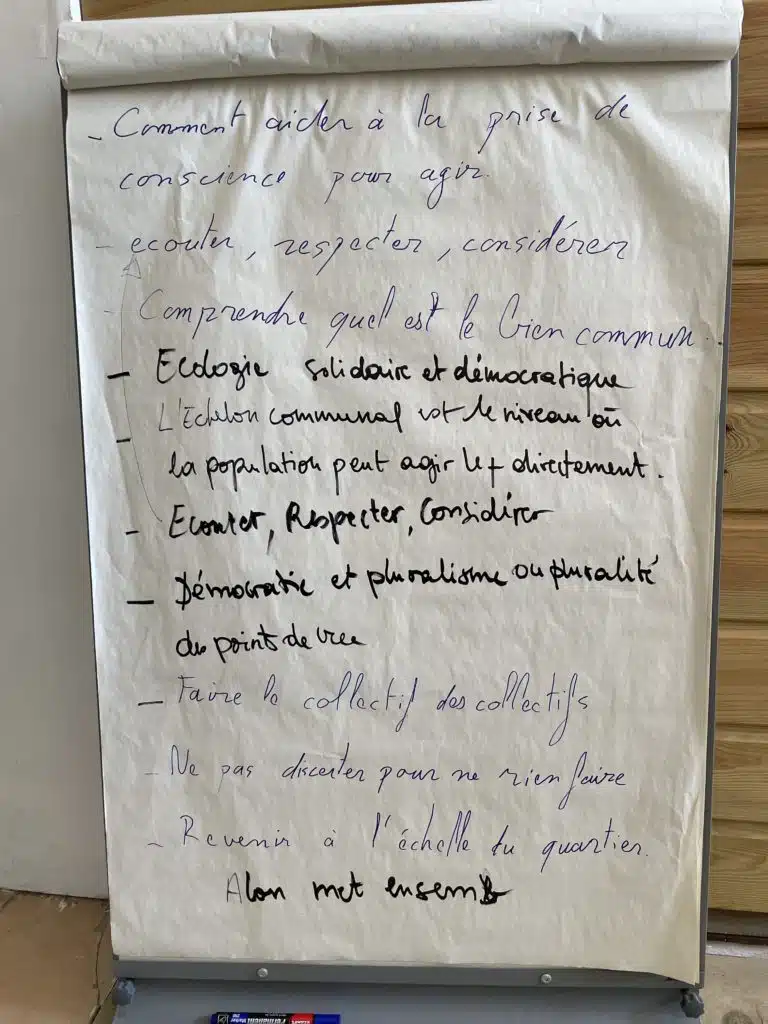 - Comment aider à la prise de
conscience pour agir.
- ecouter, respecter, considérer
- Comprendre quel est le bien commun.
- Ecologie solidaire et démocratique
- L'Echelon communal est le niveau où
la population peut agir le + directement.
- Ecouter, Respecter, Considérer
- Démocratie et pluralisme ou pluralité
des points de vue
- Faire le collectif des collectifs
- Ne pas discuter pour ne rien faire
- Revenir à l'échelle du quartier.
met ensemb
PERMANENT Marker